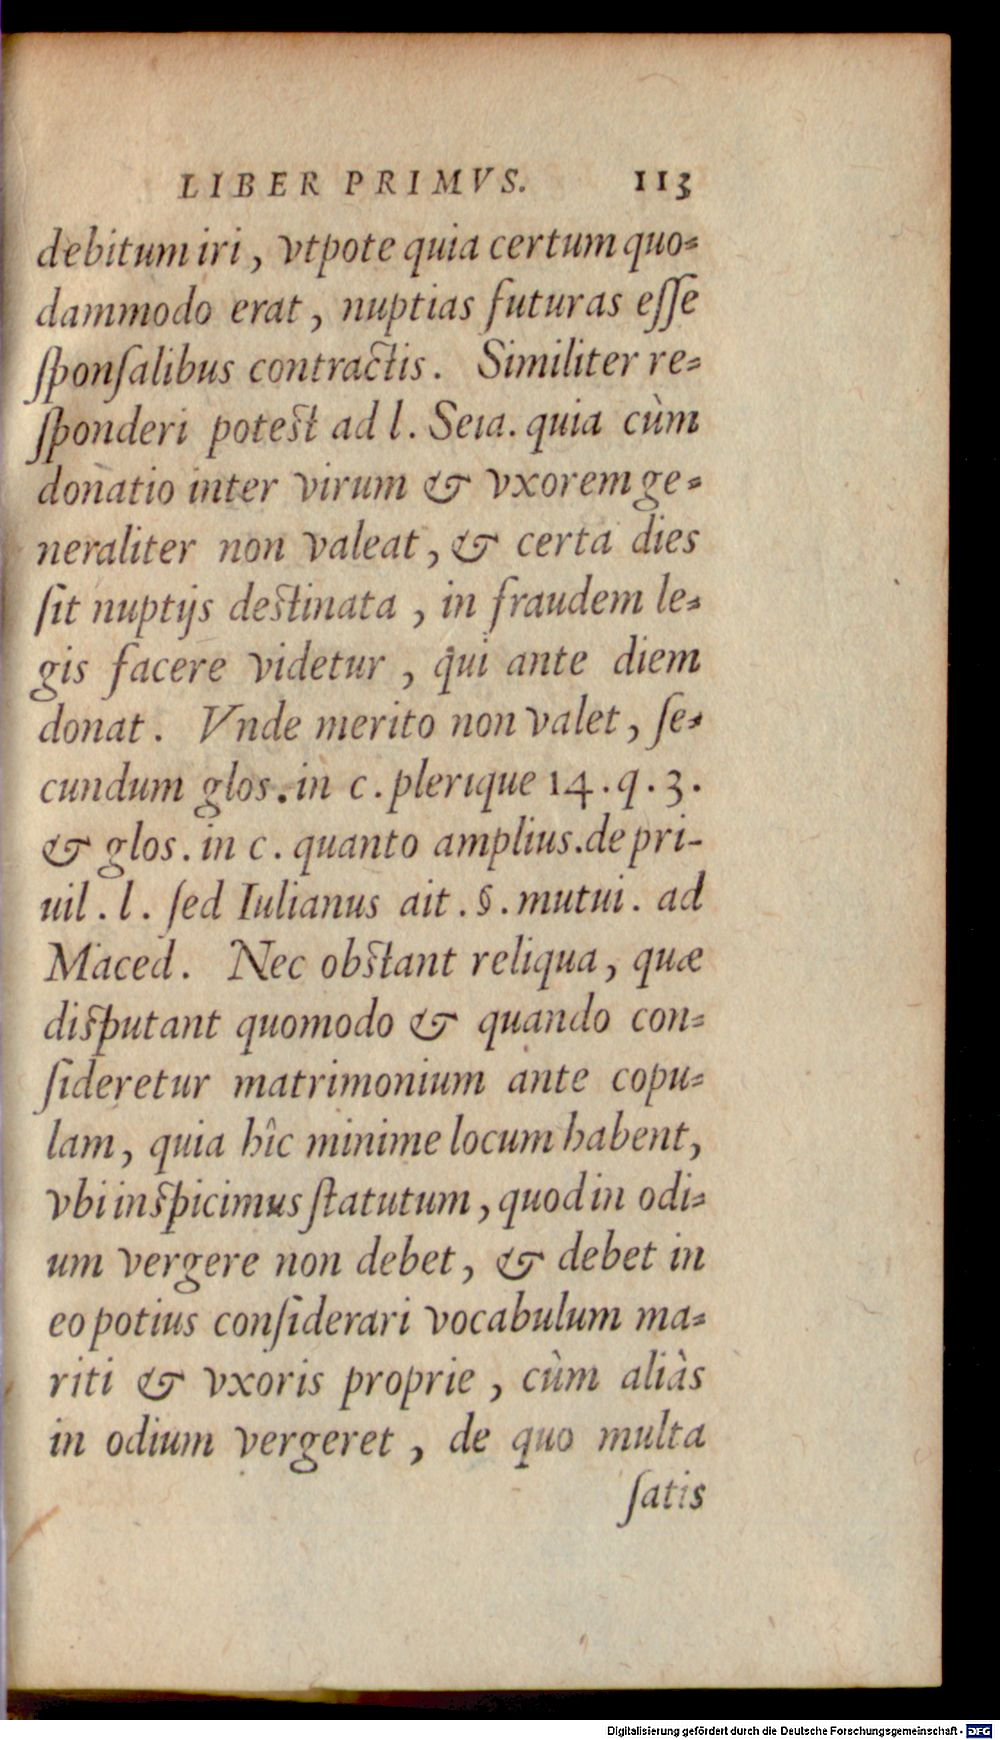 LIBER PRIMVS. 113
debitum iri, vtpote quia certum quo-
dammodo erat, nuptias futuras eſſe
ſponſalibus contractis. Similiter re-
ſponderi poteſt ad l. Seia. quia cùm
donatio inter virum & vxorem ge-
neraliter non valeat, & certa dies
ſit nuptijs deſtinata, in fraudem le-
gis facere videtur, qui ante diem
donat. Vnde merito non valet, ſe-
cundum glos. in c. plerique 14. q. 3.
& glos. in c. quanto amplius. de pri-
uil. l. ſed Iulianus ait. §. mutui. ad
Maced. Nec obſtant reliqua, quæ
diſputant quomodo & quando con-
ſideretur matrimonium ante copu-
lam, quia hîc minime locum habent,
vbi inſpicimus ſtatutum, quod in odi-
um vergere non debet, & debet in
eo potius conſiderari vocabulum ma-
riti & vxoris proprie, cùm aliàs
in odium vergeret, de quo multa
ſatis
Digitalisierung gefördert durch die Deutsche Forschungsgemeinschaft - DFG